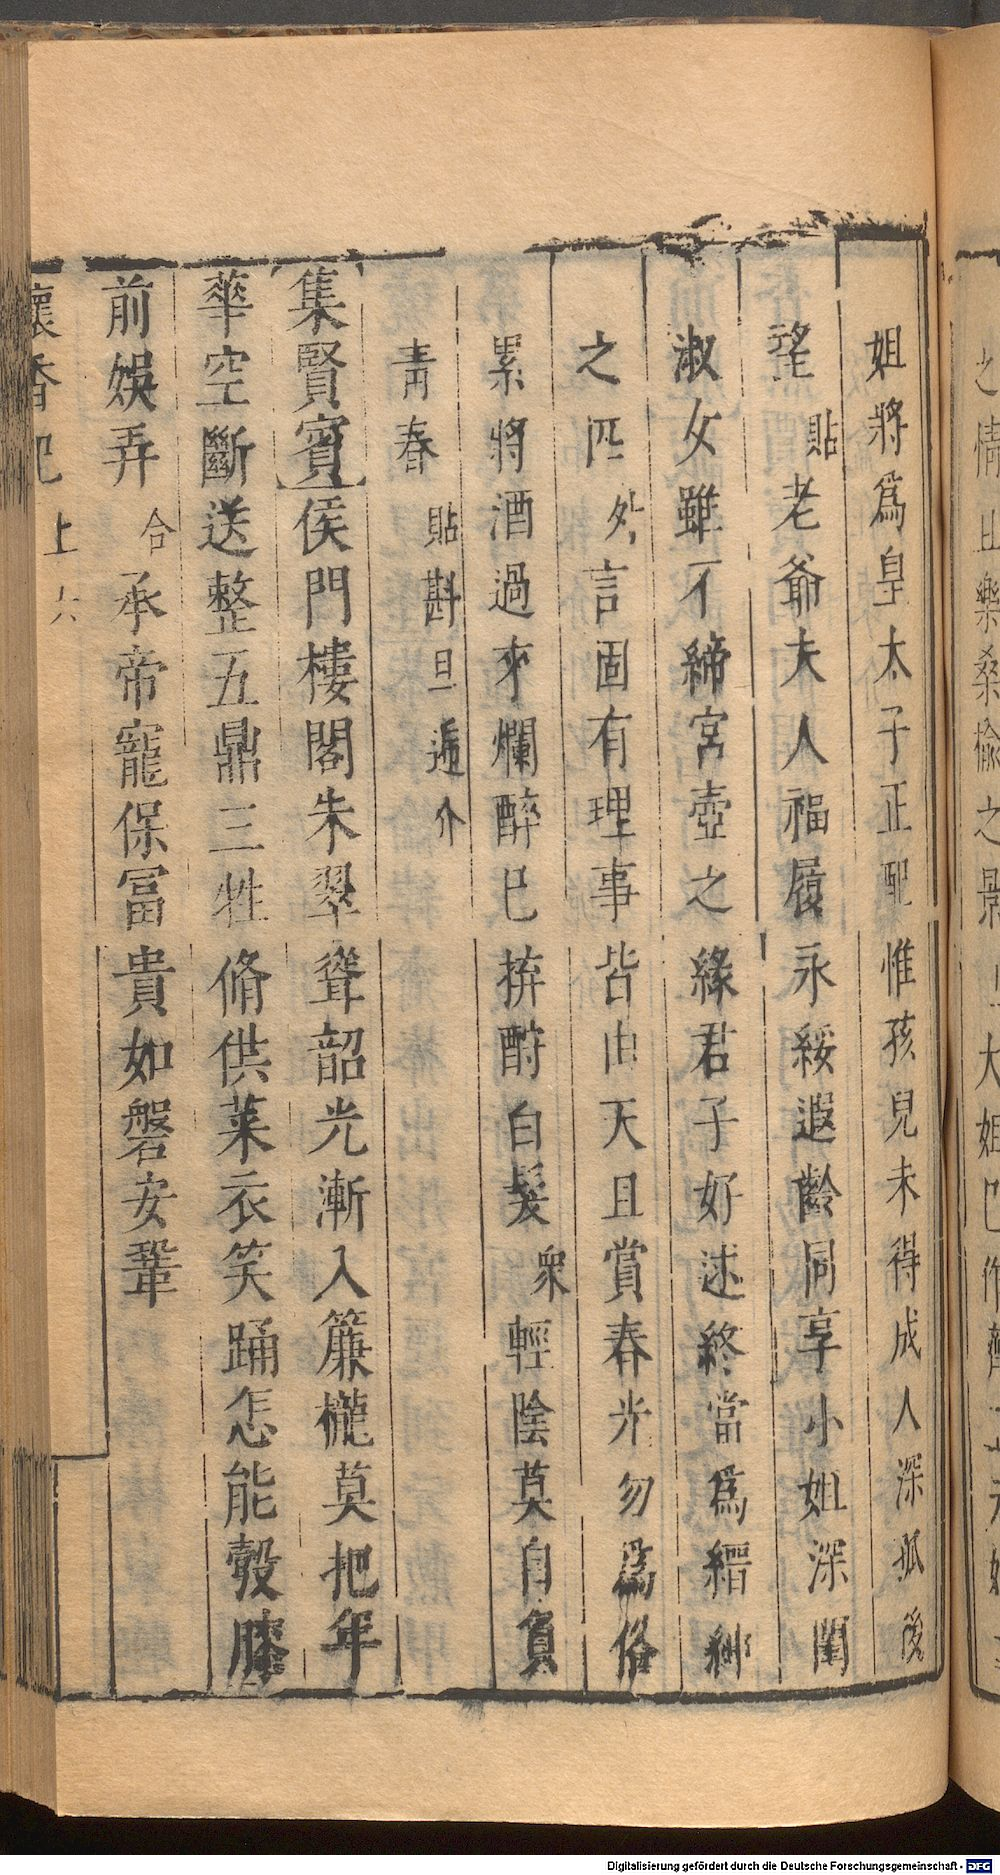 姐將爲皇太子正配惟孩兒未得成人深孤後
望貼老爺夫人福履永綏遐齡同享小姐深閨
淑女雖不締宮壺之緣君子好逑終當爲縉紳
之匹外言固有理事皆由天且賞春光勿爲俗
累將酒過來爛醉巳拚酧白髮衆輕陰莫自負
青春貼斟旦遞介
集賢賓侯門樓閣朱翠聳韶光漸入簾櫳莫把年
華空斷送整五鼎三牲脩供萊衣笑踊怎能彀膝
前娛弄合承帝寵保冨貴如磐安鞏
懷香記上六
Digitalisierung gefördert durch die Deutsche Forschungsgemeinschaft - DFG